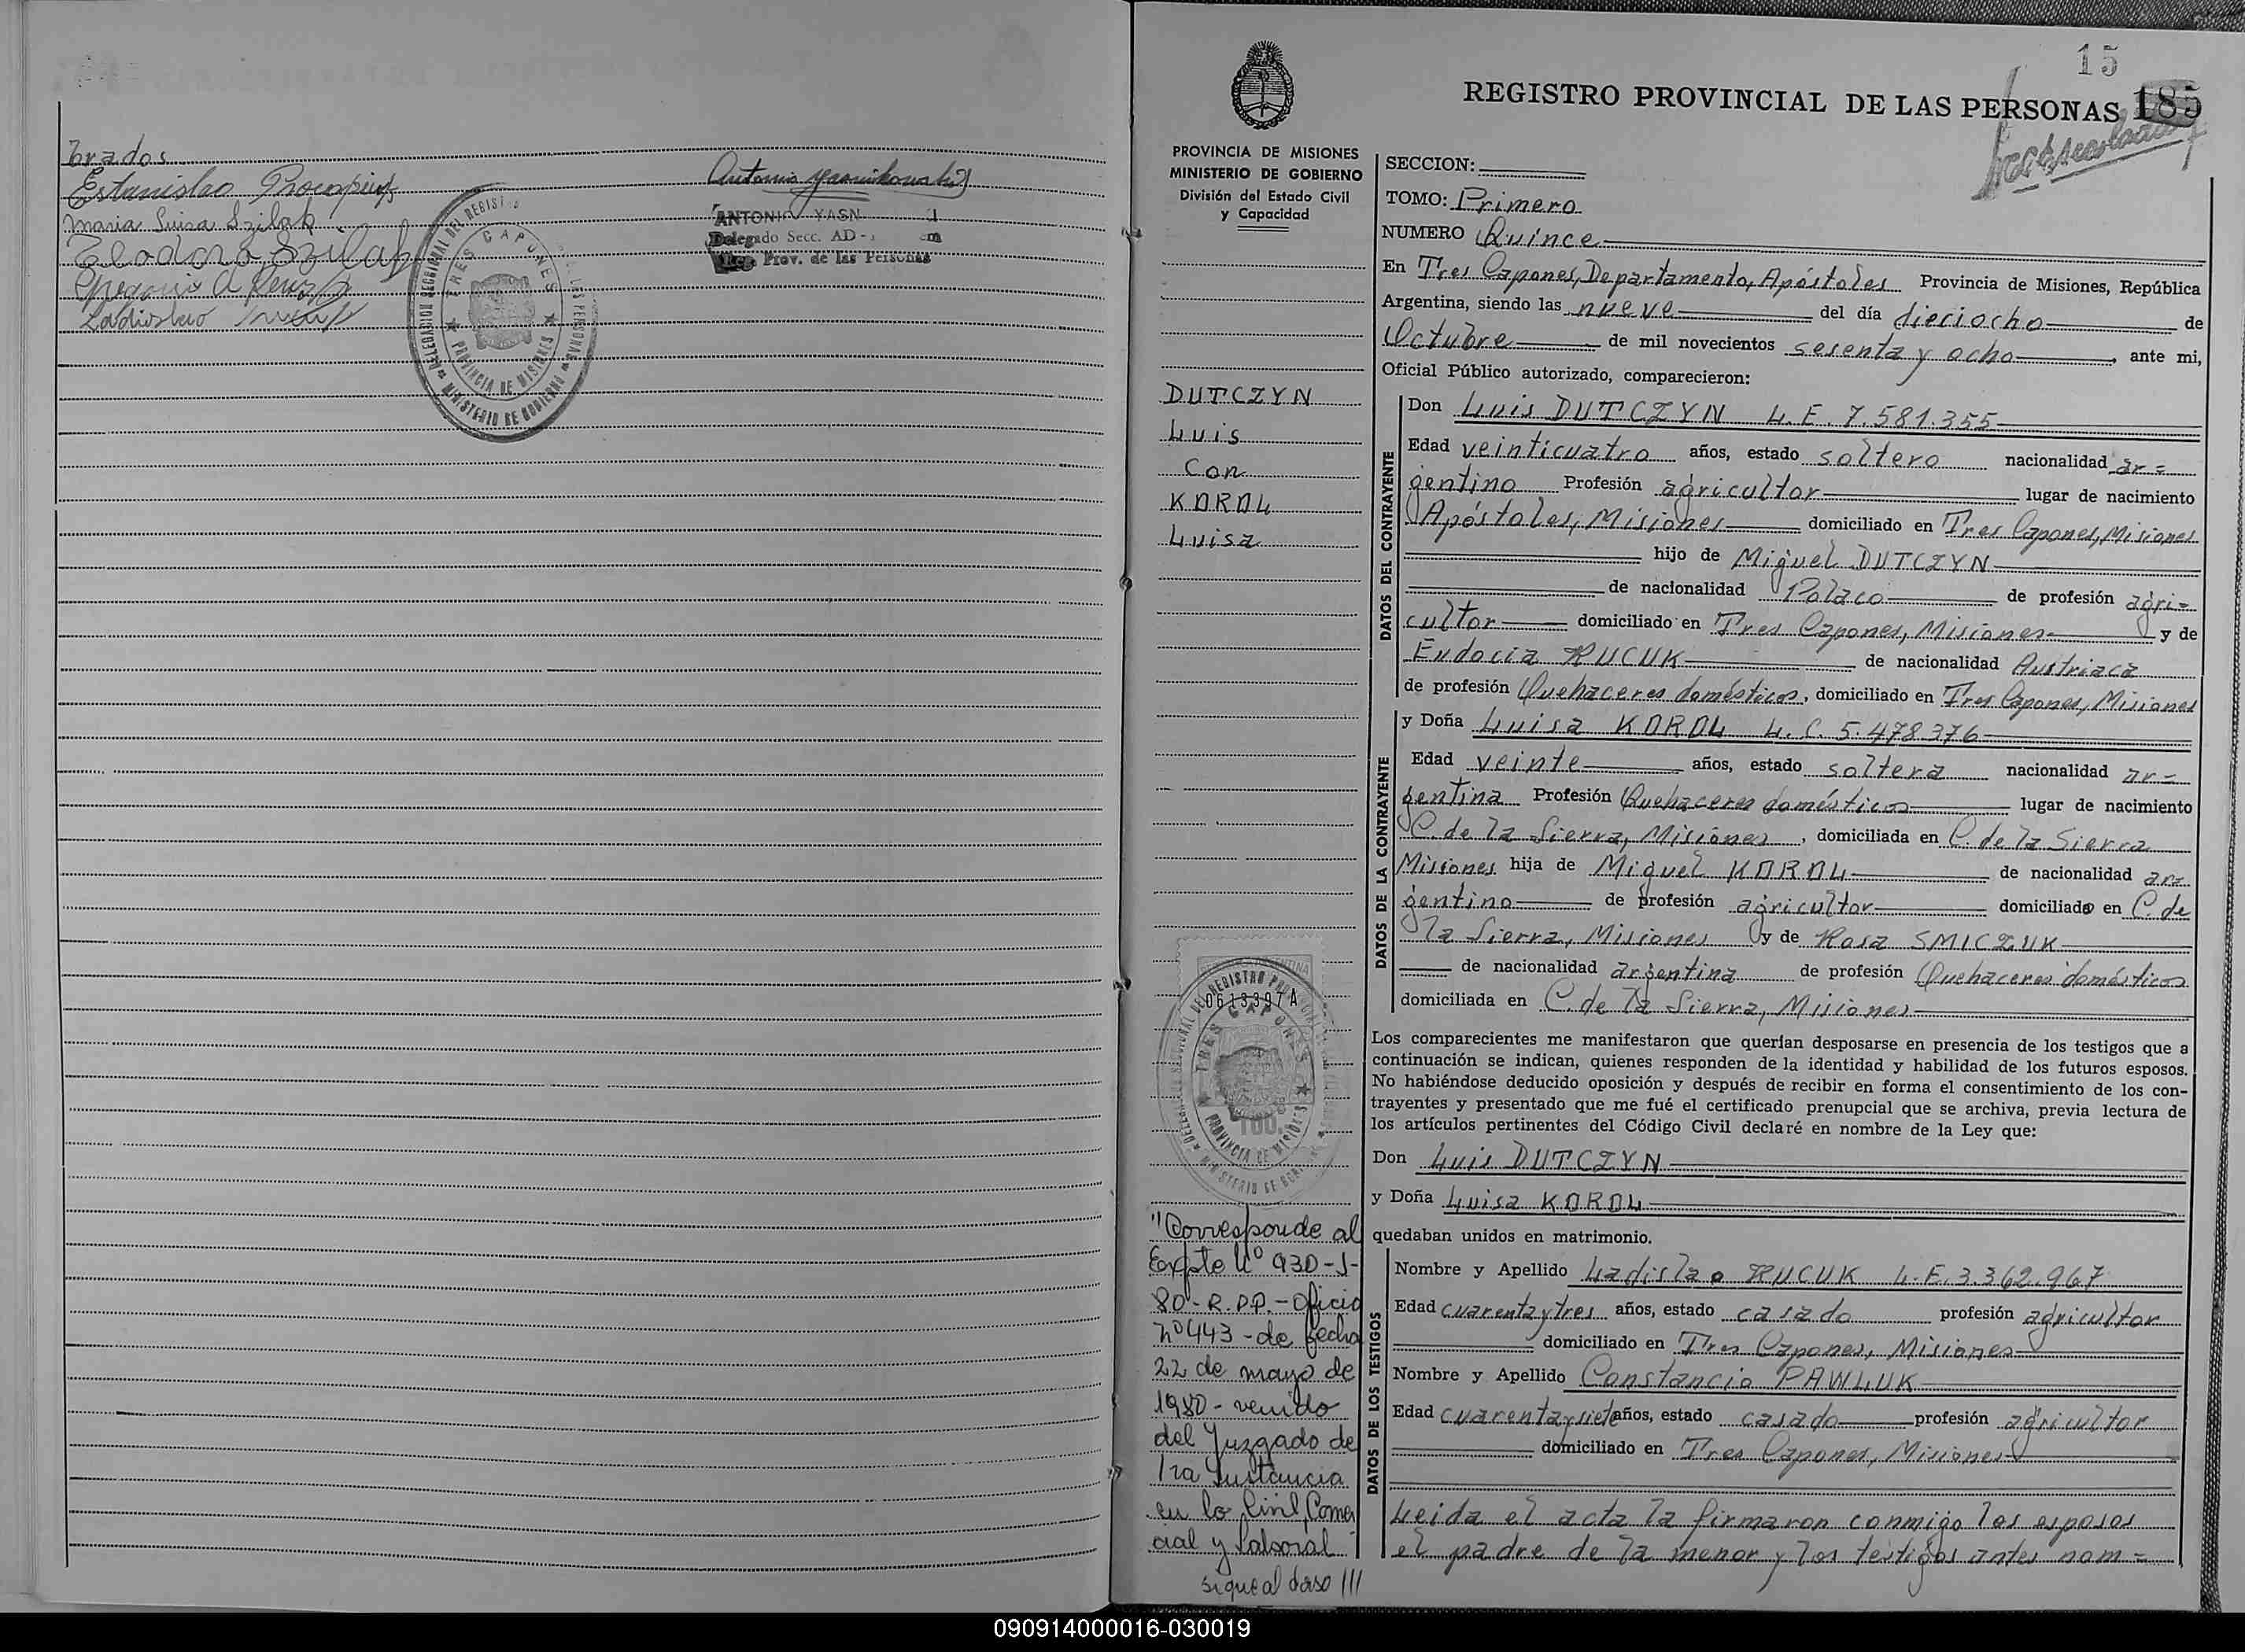 brados
Estanislao Procopiuk
Maria Luisa Szilak
Teodoro Szilak
Gregorio A
Ladislao
Antonio Yasnikowski
ANTONIO YASN
Delegado Secc. AD-
Reg. Prov. de las Personas
DELEGACION REGIONAL DEL REGISTRO
DE LAS PERSONAS
TRES CAPONES
PROVINCIA DE MISIONES
MINISTERIO DE GOBIERNO
15
REGISTRO PROVINCIAL DE LAS PERSONAS 185
PROVINCIA DE MISIONES
MINISTERIO DE GOBIERNO
División del Estado Civil
y Capacidad
DUTCZYN
Luis
Con
KOROL
Luisa
0613397A
TRES CAPONES
PROVINCIA DE MISIONES
100
"Corresponde al
Expte Nº 930-J-
80-R.P.P.-Oficio
nº 443 - de fecha
22 de mayo de
1980 - venido
del Juzgado de
1ra Instancia
en lo Civil, Comer
cial y Laboral
sigue al dorso ///
SECCION:
TOMO: Primero
NUMERO Quince
En Tres Capones, Departamento, Apóstoles Provincia de Misiones, República
Argentina, siendo las nueve del día dieciocho de
Octubre de mil novecientos sesenta y ocho, ante mi,
Oficial Público autorizado, comparecieron:
DATOS DEL CONTRAYENTE
Don Luis DUTCZYN L.E. 7.581.355
Edad veinticuatro años, estado soltero nacionalidad ar=
gentino Profesión agricultor lugar de nacimiento
Apóstoles, Misiones domiciliado en Tres Capones, Misiones
hijo de Miguel DUTCZYN
de nacionalidad Polaco de profesión agri=
cultor domiciliado en Tres Capones, Misiones y de
Eudocia RUCUK de nacionalidad Austriaca
de profesión Quehaceres domésticos, domiciliado en Tres Capones, Misiones
DATOS DE LA CONTRAYENTE
y Doña Luisa KOROL L.C. 5.478.376
Edad veinte años, estado soltera nacionalidad ar=
gentina Profesión Quehaceres domésticos lugar de nacimiento
C. de la Sierra, Misiones, domiciliada en C. de la Sierra
Misiones hija de Miguel KOROL de nacionalidad ar=
gentino de profesión agricultor domiciliado en C. de
la Sierra, Misiones y de Rosa SMICZUK
de nacionalidad argentina de profesión Quehaceres domésticos
domiciliada en C. de la Sierra, Misiones
Los comparecientes me manifestaron que querían desposarse en presencia de los testigos que a
continuación se indican, quienes responden de la identidad y habilidad de los futuros esposos.
No habiéndose deducido oposición y después de recibir en forma el consentimiento de los con-
trayentes y presentado que me fué el certificado prenupcial que se archiva, previa lectura de
los artículos pertinentes del Código Civil declaré en nombre de la Ley que:
Don Luis DUTCZYN
y Doña Luisa KOROL
quedaban unidos en matrimonio.
DATOS DE LOS TESTIGOS
Nombre y Apellido Ladislao RUCUK L.E. 3.362.967
Edad cuarenta y tres años, estado casado profesión agricultor
domiciliado en Tres Capones, Misiones
Nombre y Apellido Constancio PAWLUK
Edad cuarenta y siete años, estado casado profesión agricultor
domiciliado en Tres Capones, Misiones
Leida el acta la firmaron conmigo los esposos
el padre de la menor y los testigos antes nom=
090914000016-030019